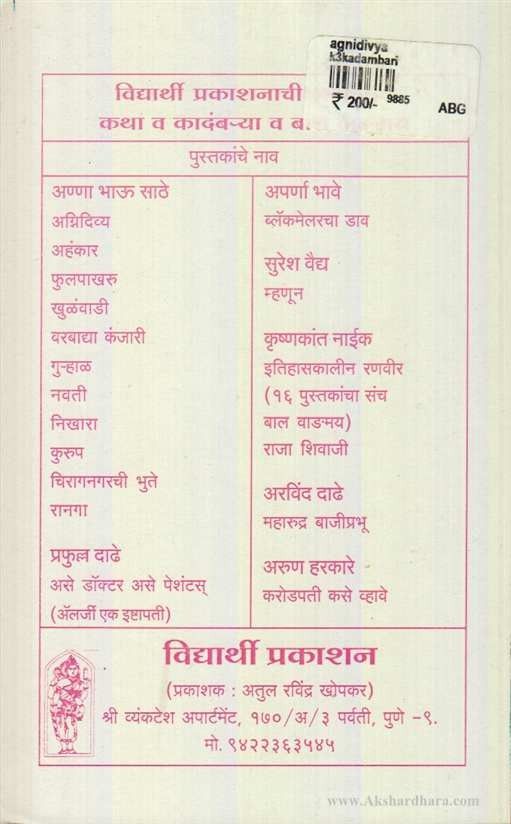 agnidivya
k3kadambari
₹ 200/- 9885
ABG
विद्यार्थी प्रकाशनाची
कथा व कादंबऱ्या व ब
पुस्तकांचे नाव
अण्णा भाऊ साठे
अग्निदिव्य
अहंकार
फुलपाखरु
खुळंवाडी
वरबाद्या कंजारी
गुऱ्हाळ
नवती
निखारा
कुरुप
चिरागनगरची भुते
रानगा
प्रफुल्ल दाढे
असे डॉक्टर असे पेशंटस्
(ॲलर्जी एक इष्टापती)
अपर्णा भावे
ब्लॅकमेलरचा डाव
सुरेश वैद्य
म्हणून
कृष्णकांत नाईक
इतिहासकालीन रणवीर
(१६ पुस्तकांचा संच
बाल वाङमय)
राजा शिवाजी
अरविंद दाढे
महारुद्र बाजीप्रभू
अरुण हरकारे
करोडपती कसे व्हावे
विद्यार्थी प्रकाशन
(प्रकाशक : अतुल रविंद्र खोपकर)
श्री व्यंकटेश अपार्टमेंट, १७०/अ/३ पर्वती, पुणे -९.
मो. ९४२२३६३५४५
www.Akshardhara.com